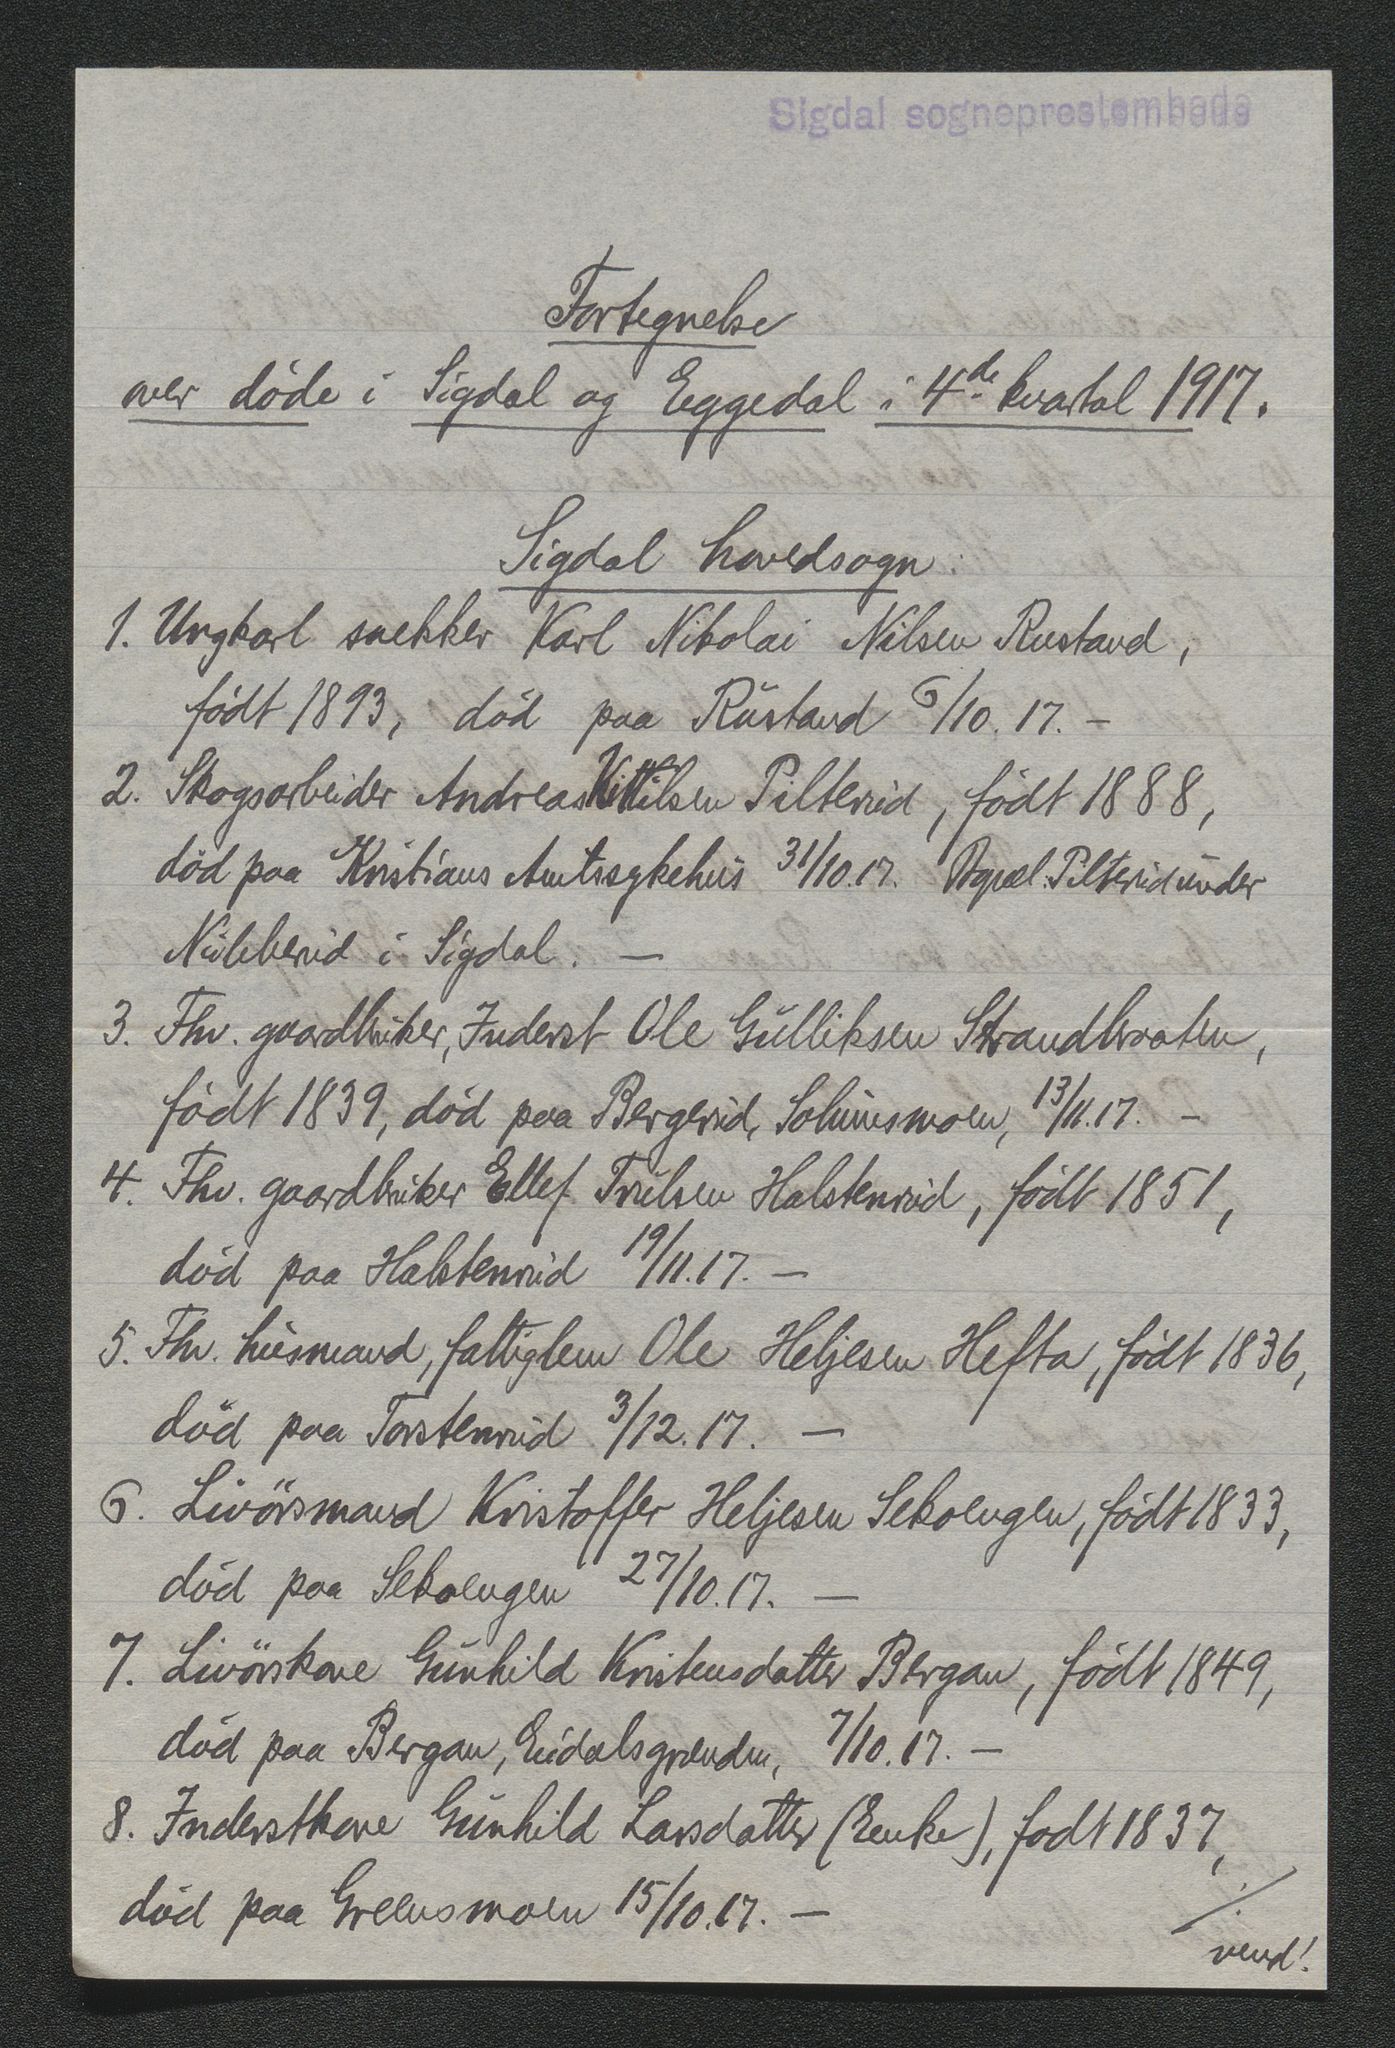 Sigdal sogneprestembede
Fortegnelse
over døde i Sigdal og Eggedal i 4de kvartal 1917.
Sigdal hovedsogn:
1. Ungkarl snekker Karl Nikolai Nilsen Rustand,
født 1893, død paa Rustand 6/10.17. –
2. Skogsarbeider Andreas Kittilsen Pilterud, født 1888,
død paa Kristians Amtssykehus 31/10.17. Pilterud under
Nubberud i Sigdal. –
3. Fhv. gaardbruker, Inderst Ole Gulliksen Strandbraaten,
født 1839, død paa Bergerud, Solumsmoen, 13/11.17. –
4. Fhv. gaardbruker Ellef Trulsen Halstenrud, født 1851,
død paa Halstenrud 19/11.17. –
5. Fhv. husmand, fattiglem Ole Heljesen Hefta, født 1836,
død paa Torstenrud 3/12.17. –
6. Livørsmand Kristoffer Heljesen Sekoengen, født 1833,
død paa Sekoengen 27/10.17. –
7. Livørskone Gunhild Kristensdatter Bergan, født 1849,
død paa Bergan, Eidalsgrænden, 7/10.17. –
8. Inderstkone Gunhild Larsdatter (Enke), født 1837,
død paa Greensmoen 15/10.17. –
vend!